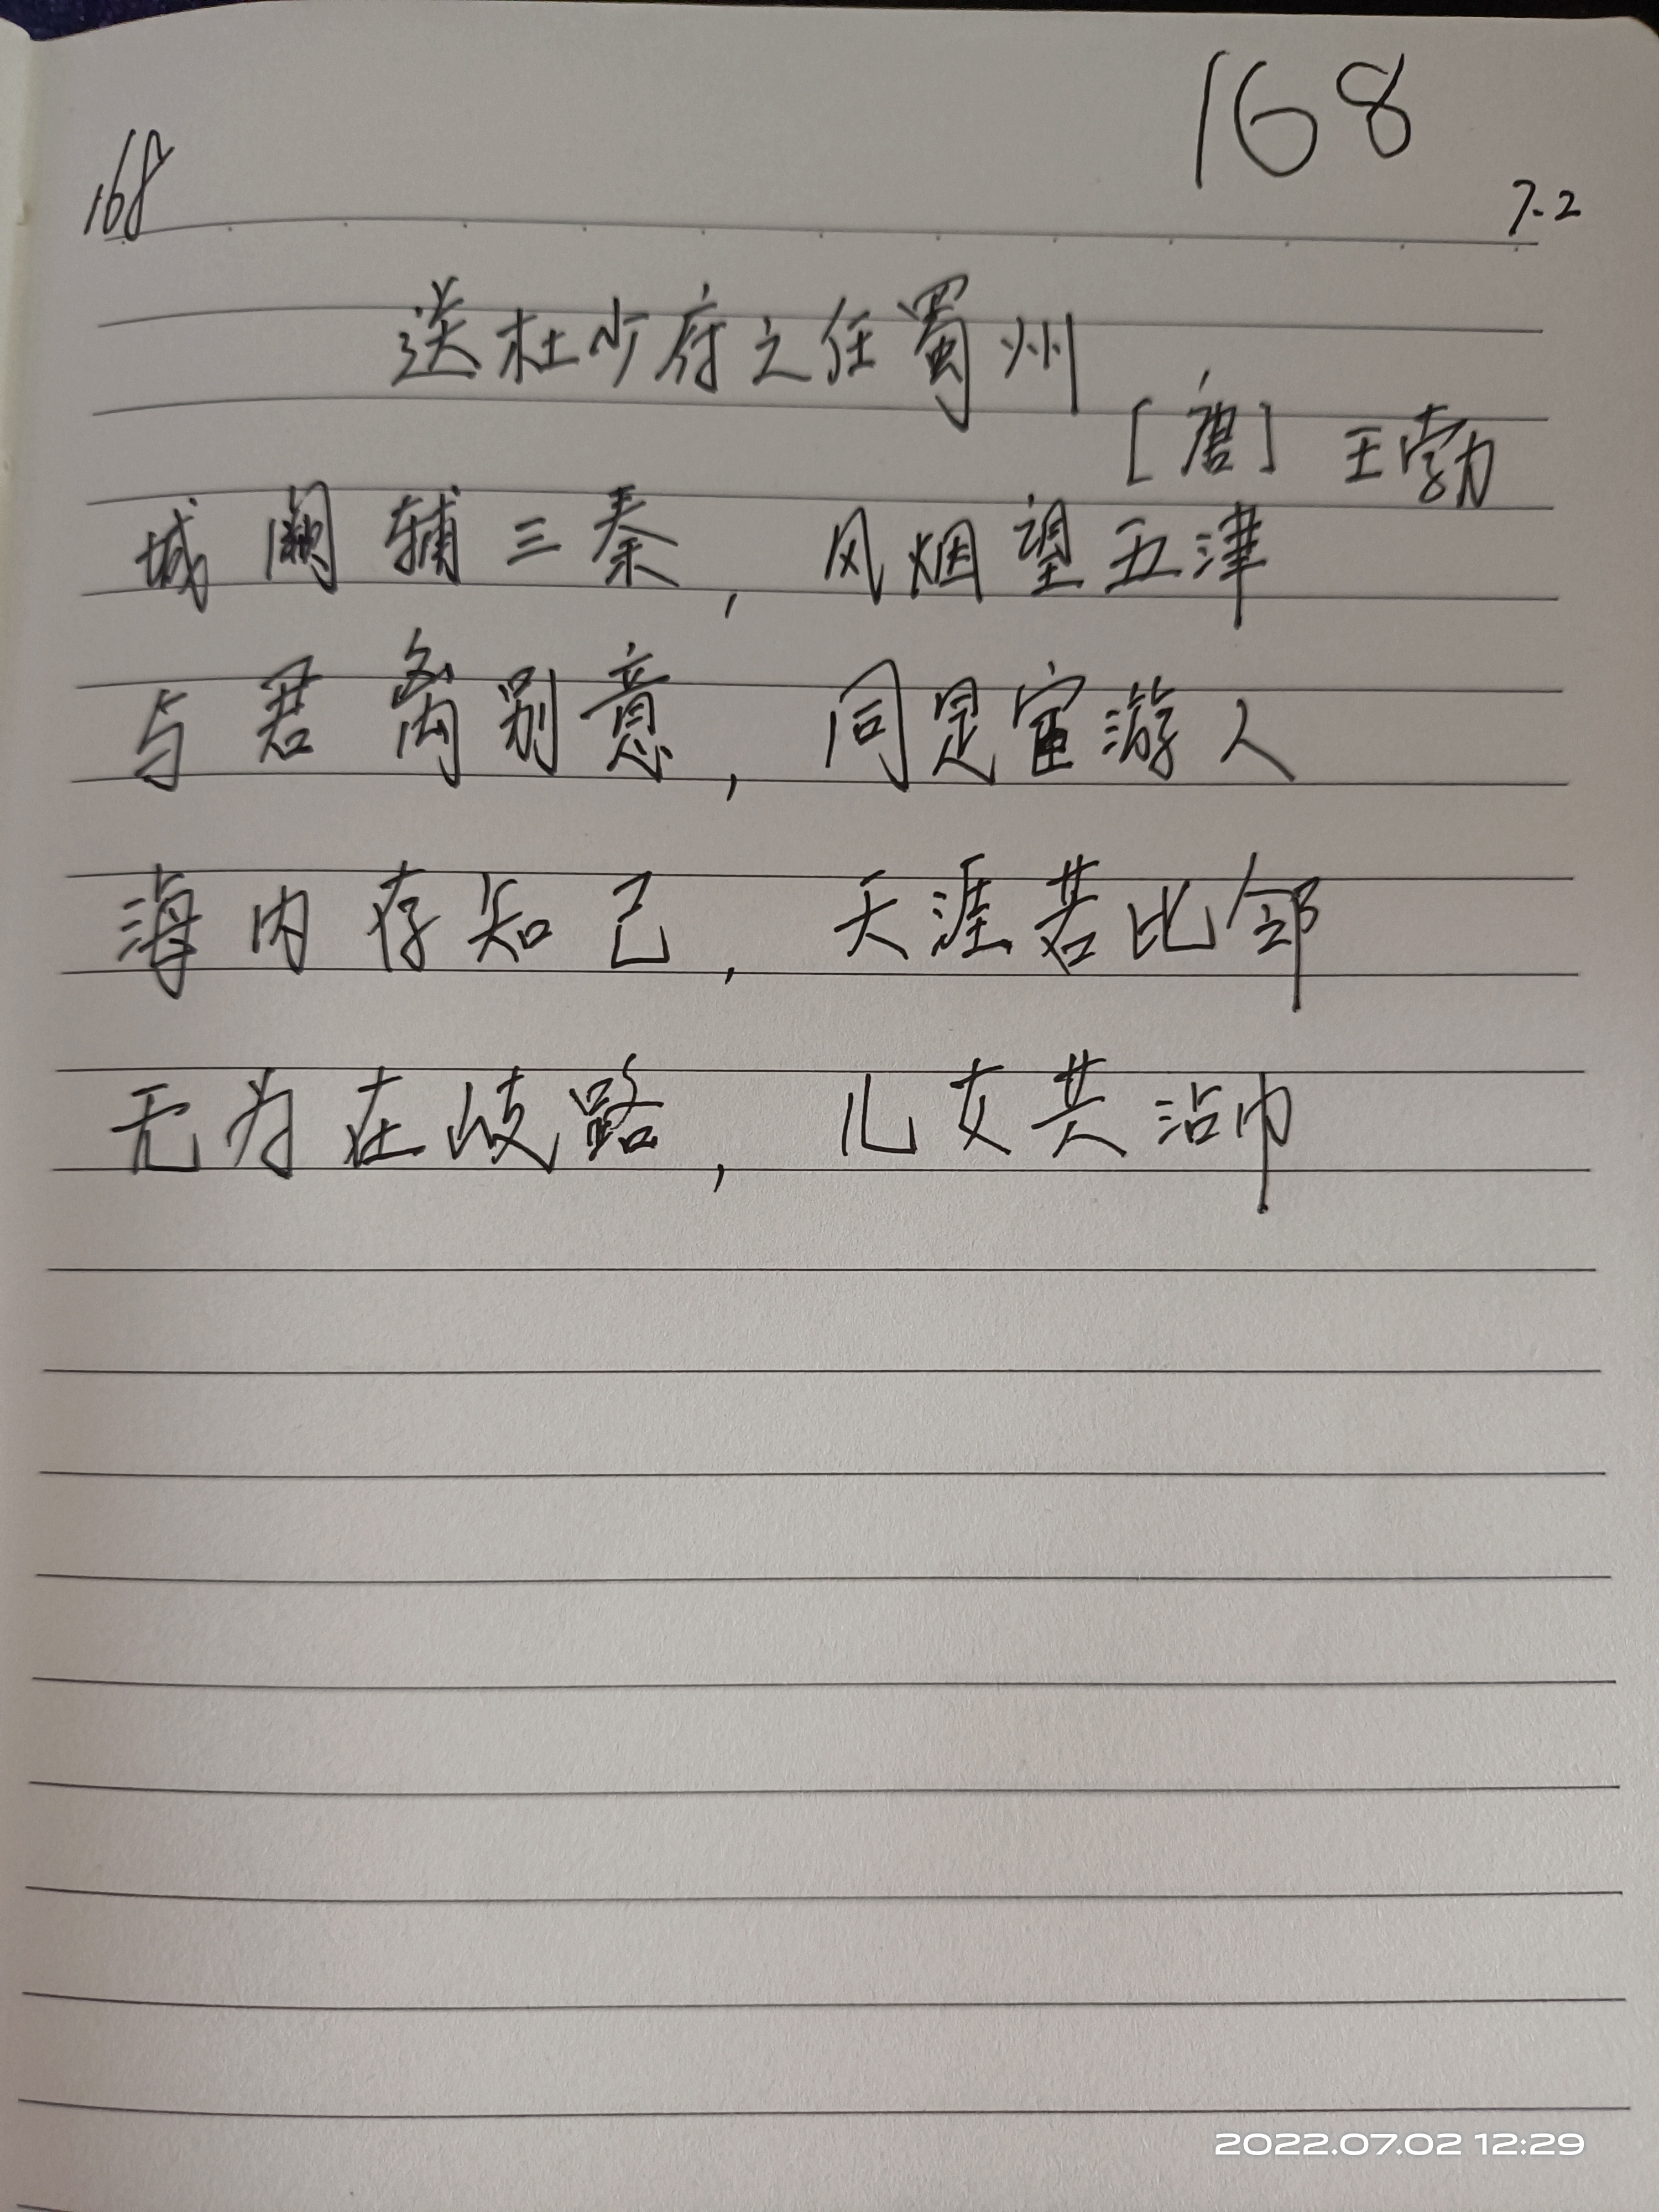 168
168
7.2
送杜少府之任蜀州
[唐] 王勃
城阙辅三秦, 风烟望五津
与君离别意, 同是宦游人
海内存知己, 天涯若比邻
无为在歧路, 儿女共沾巾
2022.07.02 12:29